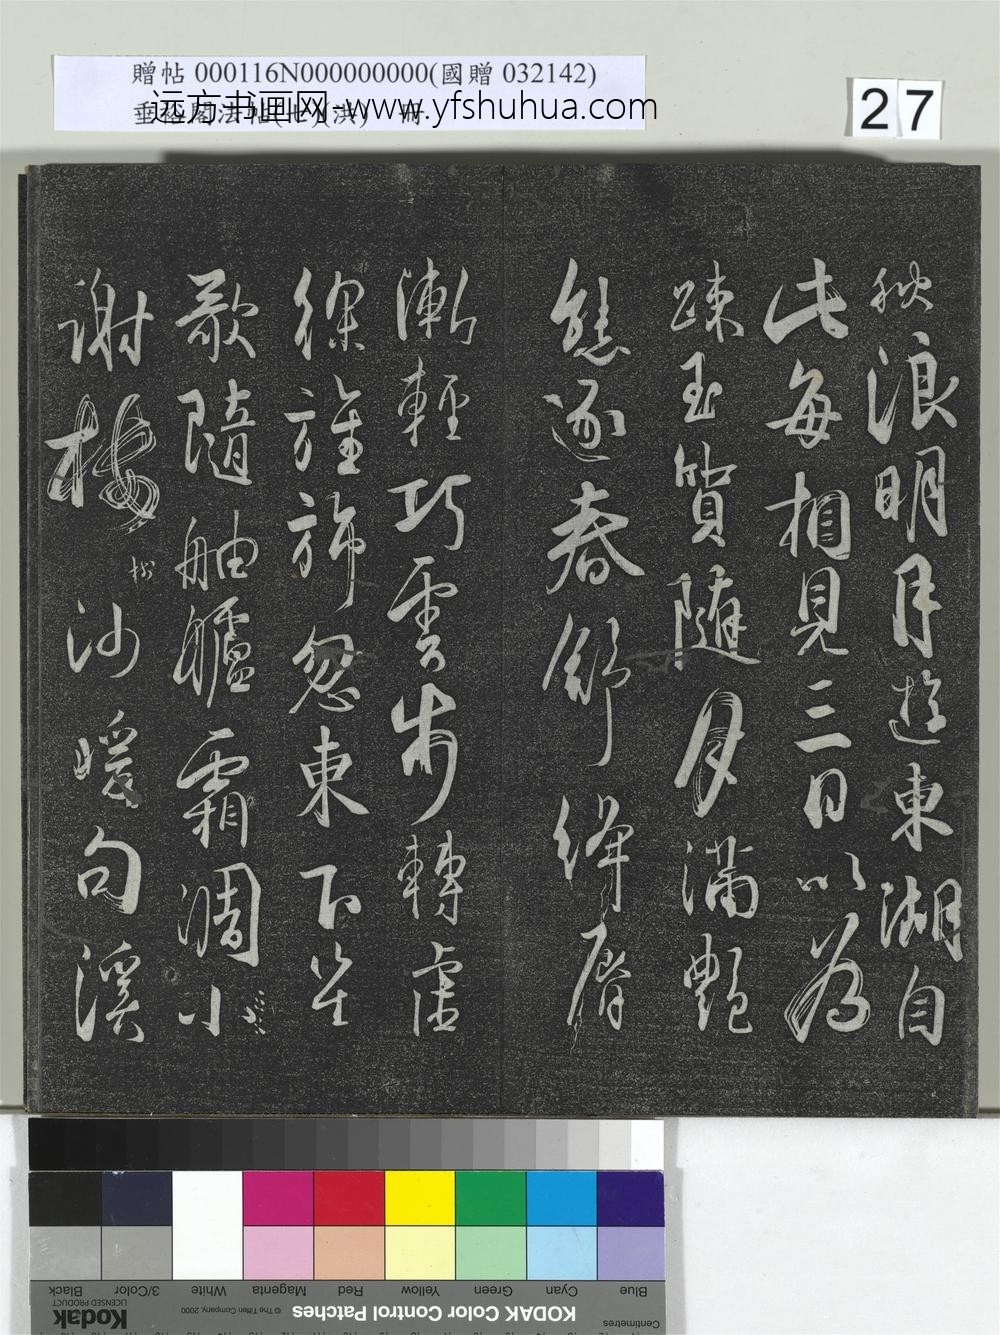 贈帖 000116N000000000(國贈 032142)
远方书画网-www.yfshuhua.com
27
秋浪明月遊東湖自
此每相見三日以為
疎玉質隨月滿艷
態逐春舒絳脣
漸輕巧雲步轉虛
徐旌旆忽東下笙
歌隨舳艫霜凋小
謝
沙暖句溪
Black
3/Color
White
Magenta
Red
Yellow
Green
Cyan
Blue
Kodak
LICENSED PRODUCT
© The Tiffen Company, 2000
KODAK Color Control Patches
Centimetres